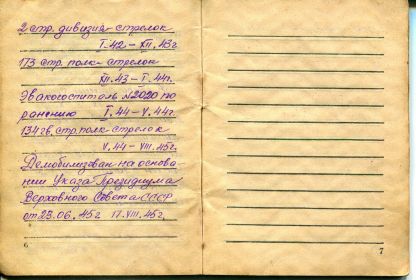 2 стр. дивизия стрелок
I.42 – XII.43г
173 стр. полк стрелок
XII.43 – I.44г.
Эвакогоспиталь №2020 по
ранению I.44 – V.44г.
134 гв. стр. полк стрелок
V.44 – VIII.45г.
Демобилизован на основа-
нии Указа Президиума
Верховного Совета СССР
от 23.06.45г 17.VIII.45г,
6
7